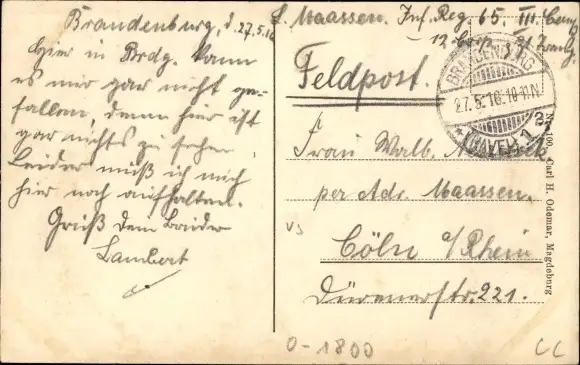 Brandenburg, d. 27.5.16
Hier in Brdg. kann
es mir gar nicht ge-
fallen, denn hier ist
gar nichts zu sehen.
Leider muß ich mich
hier noch aufhalten.
Gruß Dein Bruder
Lambert
L. Maassen. Inf. Reg. 65. III.
12.
Feldpost.
BRANDENBURG
27.5.16.10-11N
* (HAVEL) 1
Frau Walb.
per Adr. Maassen.
Cöln a/Rhein
Dürenerstr. 221.
VS
0-1800
CC
Carl H. Odemar, Magdeburg